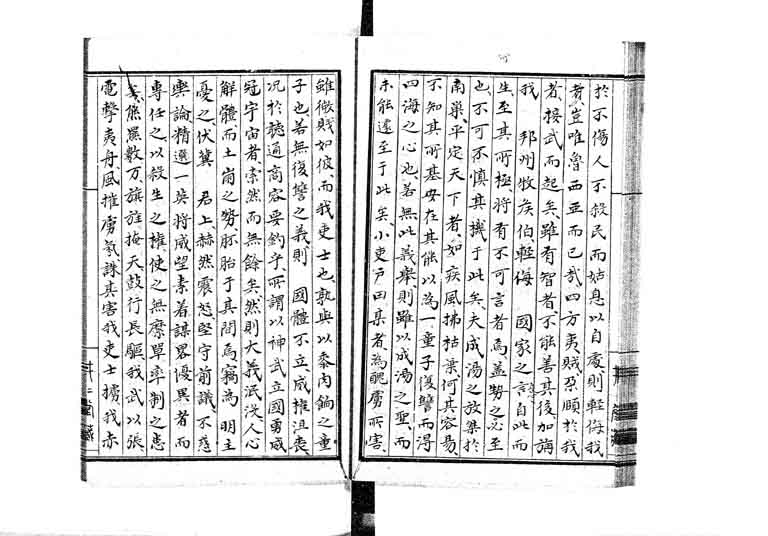 於不傷人不殺民而姑息以自處則輕侮我
者豈唯魯西亞而已哉四方夷賊朶頤於我
者接武而起矣雖有智者不能善其後加旃
我　邦州牧矦伯輕侮　國家之言自此而
生至其所極將有不可言者焉蓋勢之必至
也不可不慎其機于此矣夫成湯之放桀於
南巢平定天下者如疾風拂枯葉何其容易
不知其所基毋在其能以為一童子復讐而得
四海之心也若無此義舉則雖以成湯之聖而
未能遽至于此矣小吏戸田某者為醜虜所害
雖微賤如彼而我吏士也孰與以黍肉餉之童
子也若無復讐之義則　國體不立威權沮喪
況於聽通商容要釣乎所謂以神武立國勇威
冠宇宙者索然而無餘矣然則大義泯沒人心
解體而土崩之勢胚胎于其間焉竊為　明主
憂之伏冀　君上赫然震怒堅守前議不惑
輿論精選一英將威望素著謀畧優異者而
專任之以殺生之權使之無縻單牽制之患
熊羆數万旗旌掩天鼓行長驅我武以張
電擊夷舟風摧虜氛誅其害我吏士擄我赤